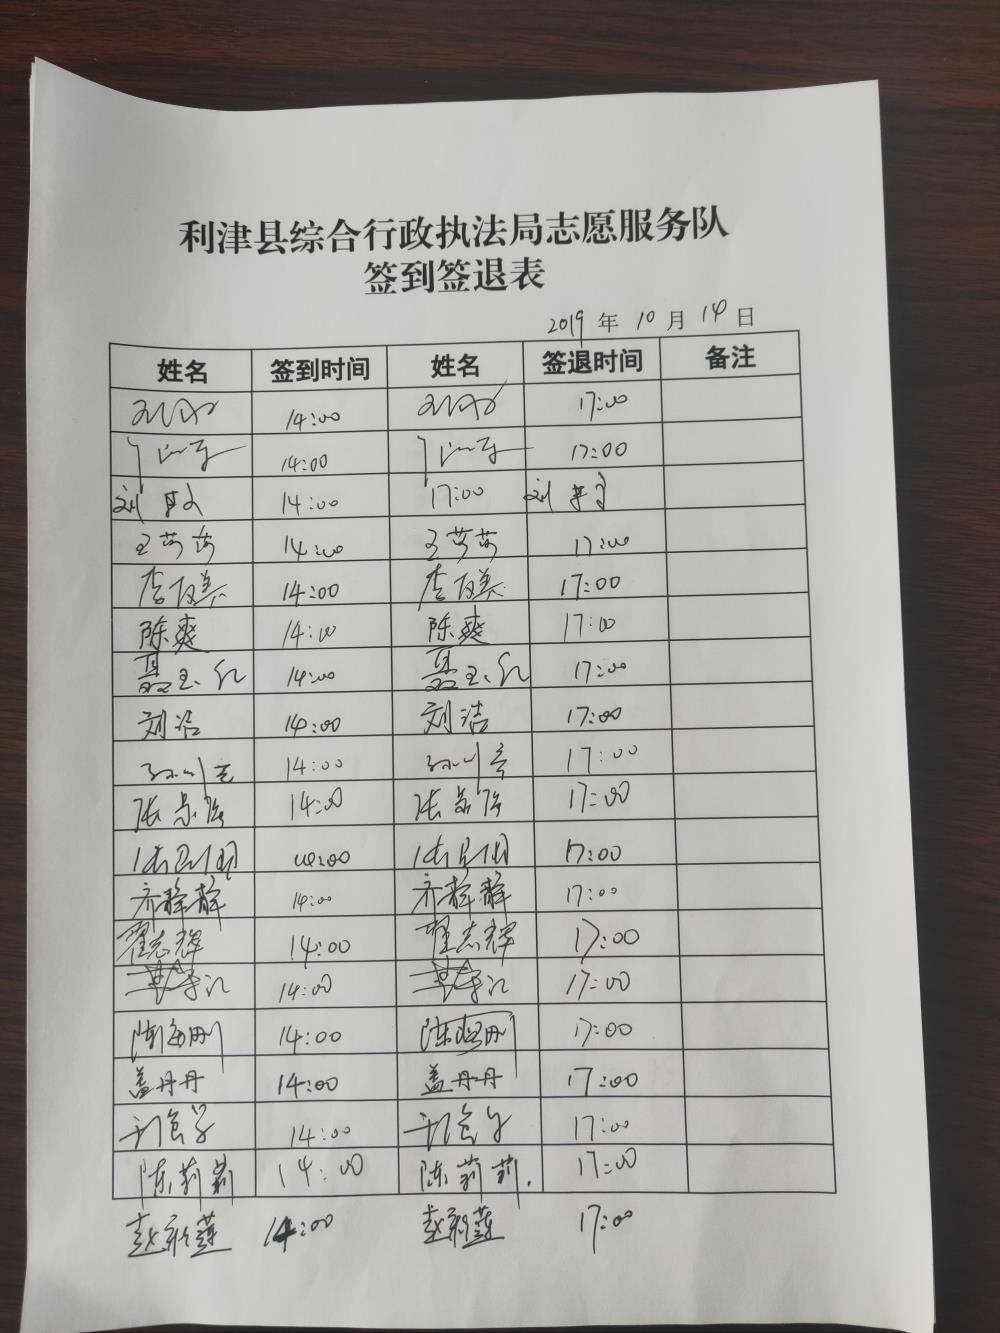 利津县综合行政执法局志愿服务队
签到签退表
2019 年 10 月 14 日
姓名 签到时间 姓名 签退时间 备注
14:00 17:00
14:00 17:00
刘 14:00 17:00 刘
王莎莎 14:00 王莎莎 17:00
李 14:00 李 17:00
陈爽 14:00 陈爽 17:00
聂玉红 14:00 聂玉红 17:00
刘洁 14:00 刘洁 17:00
14:00 17:00
张 14:00 张 17:00
14:00 17:00
齐静静 14:00 齐静静 17:00
翟志辉 14:00 翟志辉 17:00
14:00 17:00
陈 14:00 陈 17:00
盖丹丹 14:00 盖丹丹 17:00
14:00 17:00
陈莉莉 14:00 陈莉莉. 17:00
赵 莲 14:00 赵 莲 17:00